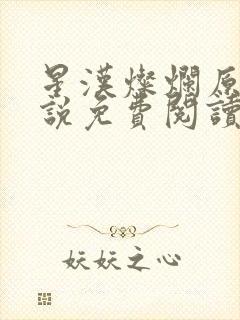 星漢燦爛原
說免費閱讀
妖妖之心